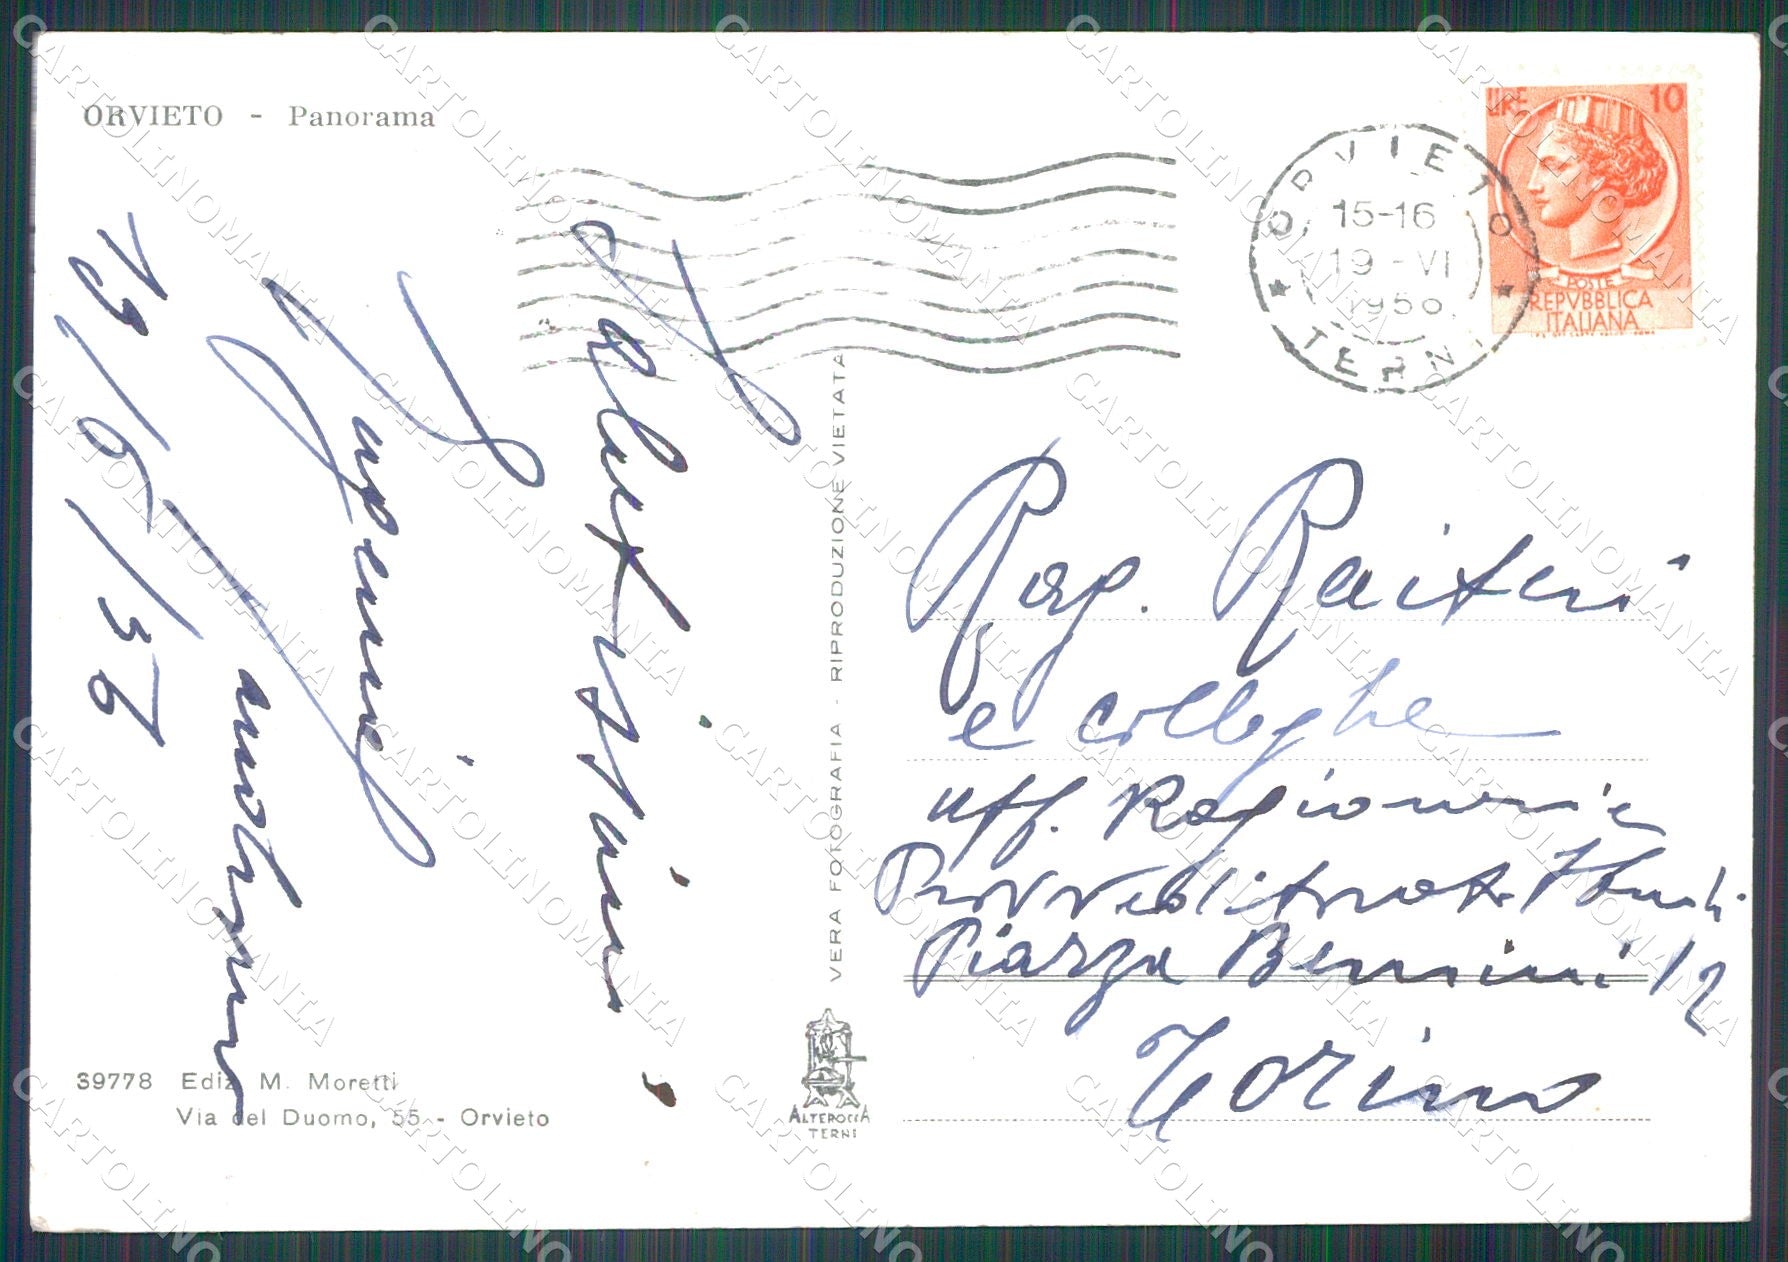 ORVIETO - Panorama
ORVIETO
15-16
19-VI
1956
TERNI
LIRE 10
POSTE
REPVBBLICA
ITALIANA
19/6/56
VERA FOTOGRAFIA - RIPRODUZIONE VIETATA
Rag. Raiteri
e colleghe
Uff. Ragioneria
Provveditorato Studi
Piazza Bernini 12
Torino
39778 Ediz. M. Moretti
Via del Duomo, 55 - Orvieto
ALTEROCCA
TERNI
CARTOLINOMANIA